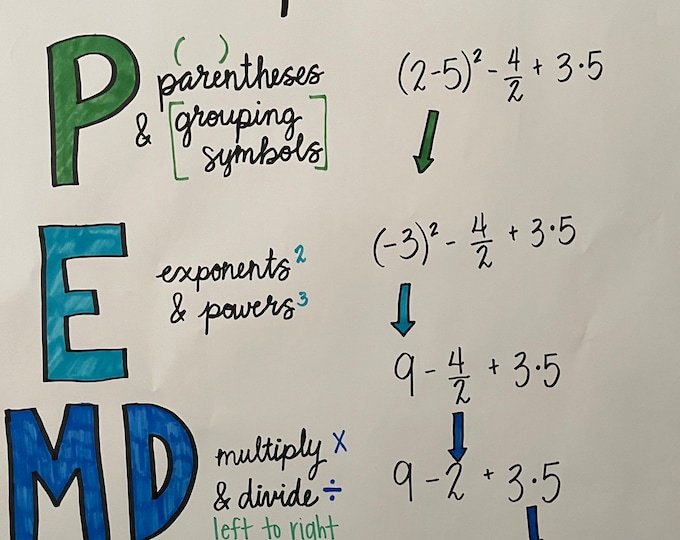 P
( )
parentheses
& [grouping
symbols]
(2-5)² - 4/2 + 3·5
E
exponents²
& powers³
(-3)² - 4/2 + 3·5
9 - 4/2 + 3·5
MD
multiply x
& divide ÷
left to right
9 - 2 + 3·5